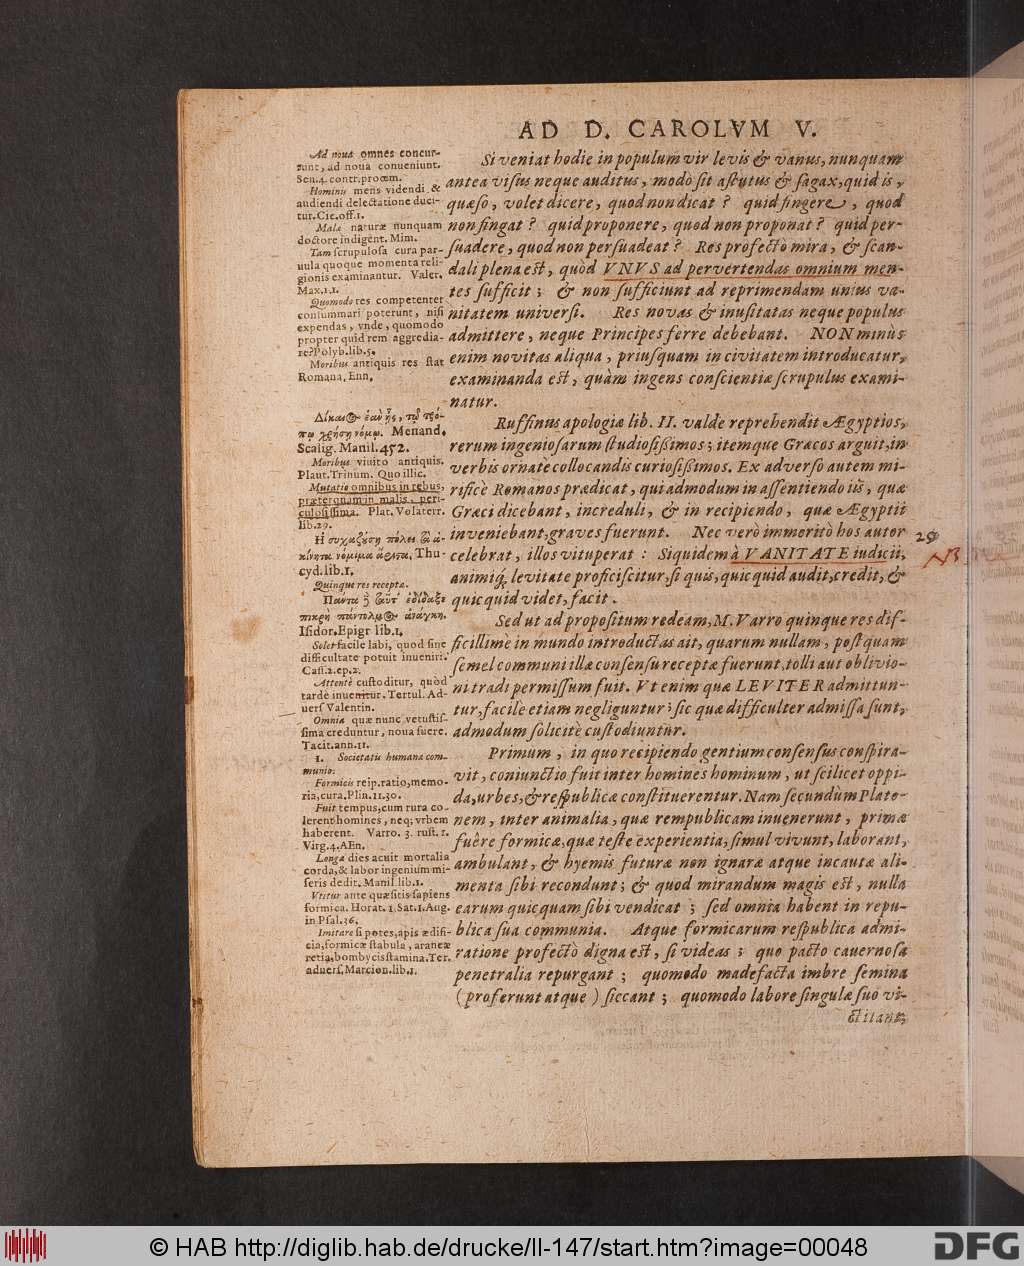 AD D. CAROLVM V.
Ad noua omnes concur-
runt, ad noua conueniunt.
Sen. 4. contr. proœm.
Hominis mens videndi &
audiendi delectatione duci-
tur. Cic. off. 1.
Malæ naturæ nunquam
doctore indigent. Mim.
Tam scrupulosa cura par-
uula quoque momenta reli-
gionis examinantur. Valer.
Max. 1. 1.
Quomodo res competenter
consummari poterunt, nisi
expendas, vnde, quomodo
propter quid rem aggredia-
re? Polyb. lib. 5.
Moribus antiquis res stat
Romana. Enn.
Menand.
Scalig. Manil. 452.
Moribus viuito antiquis.
Plaut. Trinum. Quo illic.
Mutatio omnibus in rebus,
præterquam in malis, peri-
culosissima. Plat. Volaterr.
lib. 29.
Ἡ συχαζύσῃ πόλει τὰ ἀ-
κίνητα νόμιμα ἄριστα. Thu-
cyd. lib. 1.
Quinque res receptæ.
Isidor. Epigr lib. 1.
Solet facile labi, quod sine
difficultate potuit inueniri.
Cass. 2. ep. 2.
Attentè custoditur, quòd
tardè inuenitur. Tertul. Ad-
uers Valentin.
Omnia quæ nunc vetustis-
sima creduntur, noua fuere.
Tacit. ann. 11.
1. Societatis humanæ com-
munio:
Formicis reip. ratio, memo-
ria, cura. Plin. 11. 30.
Fuit tempus, cum rura co-
lerent homines, neq; vrbem
haberent. Varro. 3. rust. 1.
Virg. 4. AEn.
Longa dies acuit mortalia
corda, & labor ingenium mi-
seris dedit. Manil lib. 1.
Vtitur ante quæsitis sapiens
formica. Horat. 1. Sat. 1. Aug.
in Psal. 36.
Imitare si potes, apis ædifi-
cia, formicæ stabula, araneæ
retia, bombycis stamina. Ter.
aduers. Marcion. lib. 1.
Si veniat hodie in populum vir levis & vanus, nunquam
antea visus neque auditus, modò sit astutus & sagax, quid is,
quæso, volet dicere, quod non dicat? quid fingere, quod
non fingat? quid proponere, quod non proponat? quid per-
suadere, quod non persuadeat? Res profectò mira, & scan-
dali plena est, quòd VNVS ad pervertendas omnium men-
tes sufficit; & non sufficiunt ad reprimendam unius va-
nitatem universi. Res novas & inusitatas neque populus
admittere, neque Principes ferre debebant. NON minùs
enim novitas aliqua, priusquam in civitatem introducatur,
examinanda est, quàm ingens conscientiæ scrupulus exami-
natur.
Ruffinus apologiæ lib. II. valde reprehendit Ægyptios,
rerum ingeniosarum studiosißimos; itemque Græcos arguit, in
verbis ornatè collocandis curiosißimos. Ex adverso autem mi-
rificè Romanos prædicat, qui admodum in assentiendo iis, quæ
Græci dicebant, increduli, & in recipiendo, quæ Ægyptii
inveniebant, graves fuerunt. Nec verò immeritò hos autor
celebrat, illos vituperat: Siquidem à VANITATE iudicii,
animiq; levitate proficiscitur, si quis, quicquid audit, credit, &
quicquid videt, facit.
Sed ut ad propositum redeam, M. Varro quinque res dif-
ficillimè in mundo introductas ait, quarum nullam, postquam
semel communi illæ consensu receptæ fuerunt, tolli aut oblivio-
ni tradi permissum fuit. Vt enim quæ LEVITER admittun-
tur, facilè etiam negliguntur; sic quæ difficulter admissa sunt,
admodum solicitè custodiuntur.
Primum, in quo recipiendo gentium consensus conspira-
vit, coniunctio fuit inter homines hominum, ut scilicet oppi-
da, urbes, & respublicæ constituerentur. Nam secundum Plato-
nem, inter animalia, quæ rempublicam inuenerunt, primæ
fuêre formicæ, quæ teste experientia, simul vivunt, laborant,
ambulant, & hyemis futuræ non ignaræ atque incautæ ali-
menta sibi recondunt; & quod mirandum magis est, nulla
earum quicquam sibi vendicat; sed omnia habent in repu-
blica sua communia. Atque formicarum respublica admi-
ratione profectò digna est, si videas; quo pacto cavernosa
penetralia repurgant; quomodo madefacta imbre semina
(proferunt atque) siccant; quomodo labore singulæ suo vi-
ctitant;
29
NB
© HAB http://diglib.hab.de/drucke/li-147/start.htm?image=00048
DFG